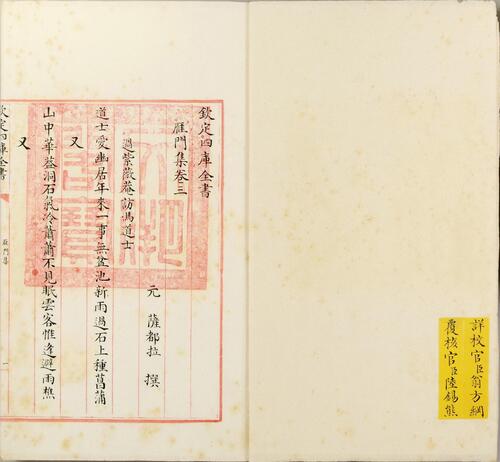 詳校官臣翁方綱
覆核官臣陸錫熊
欽定四庫全書
鴈門集卷三
元 薩都拉 撰
過紫薇菴訪馮道士
道士愛幽居年來一事無盆池新雨過石上種菖蒲
又
山中華蓋洞石氣冷蕭蕭不見眠雲客惟逢避雨樵
又
欽定四庫全書
鴈門集
一